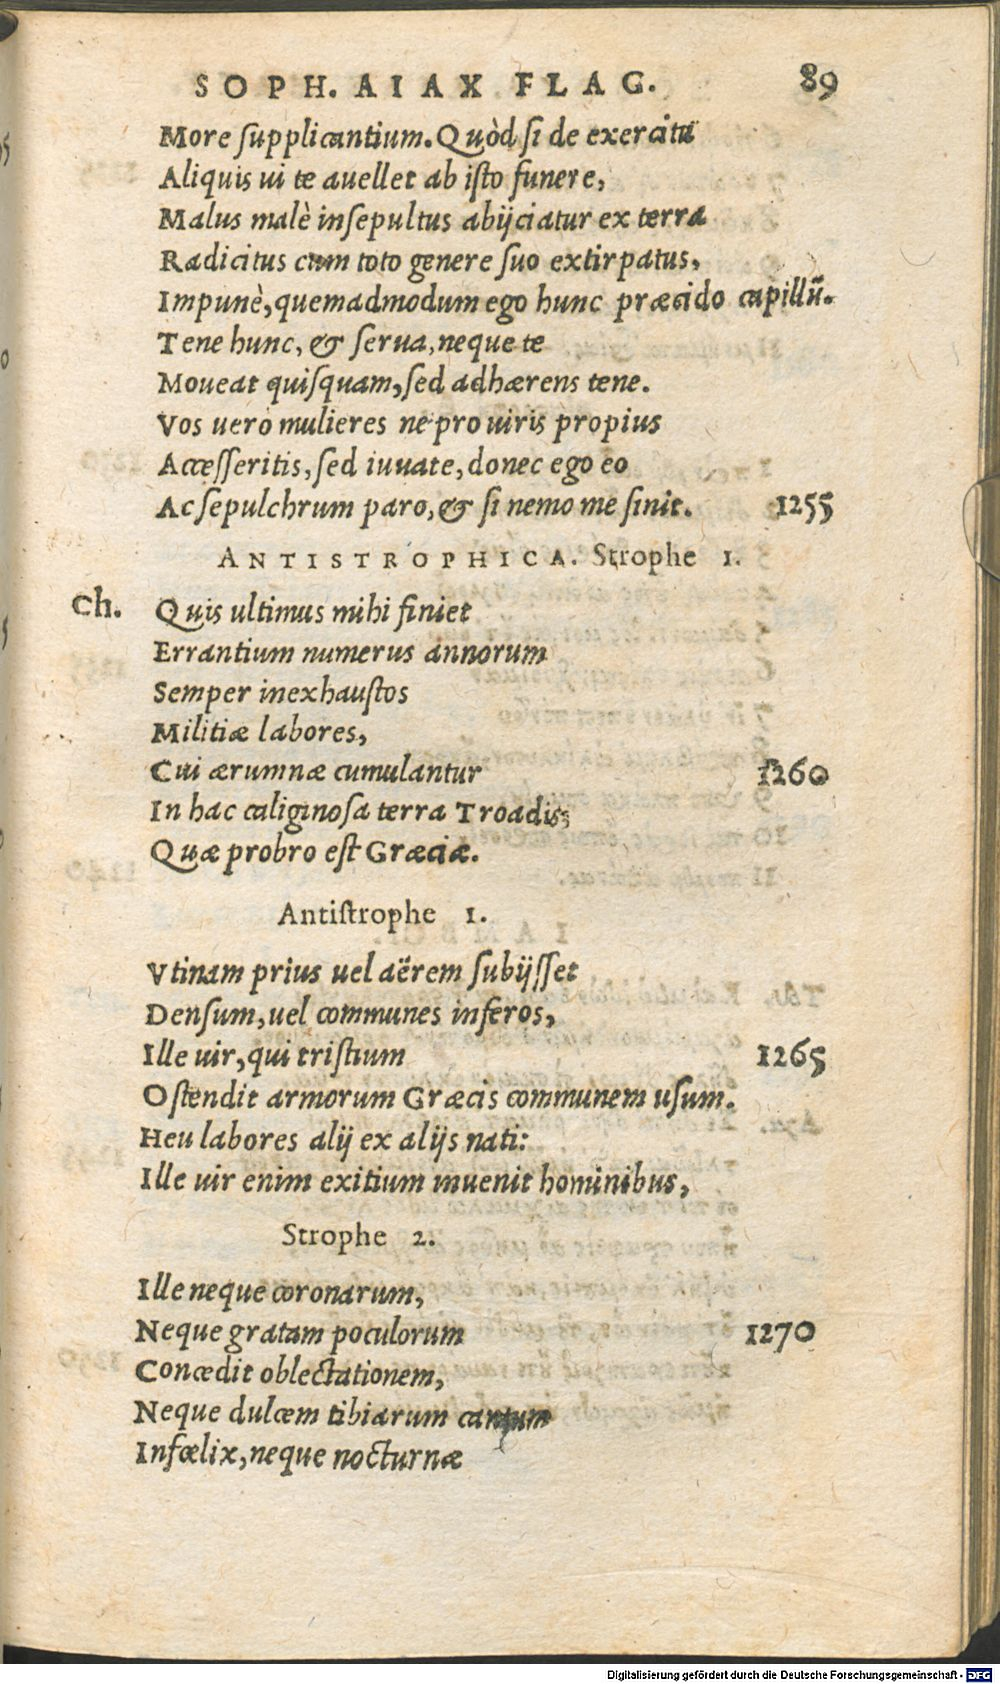 SOPH. AIAX FLAG. 89
More supplicantium. Quòd si de exercitu
Aliquis ui te auellet ab isto funere,
Malus malè insepultus abijciatur ex terra
Radicitus cum toto genere suo extirpatus,
Impunè, quemadmodum ego hunc præcido capillũ.
Tene hunc, & serua, neque te
Moueat quisquam, sed adhærens tene.
Vos uerò mulieres ne pro uiris propius
Accesseritis, sed iuuate, donec ego eo
Ac sepulchrum paro, & si nemo me sinit. 1255
ANTISTROPHICA. Strophe 1.
Ch. Quis ultimus mihi finiet
Errantium numerus annorum
Semper inexhaustos
Militiæ labores,
Cui ærumnæ cumulantur 1260
In hac caliginosa terra Troadis;
Quæ probro est Græciæ.
Antistrophe 1.
Vtinam prius uel aërem subijsset
Densum, uel communes inferos,
Ille uir, qui tristium 1265
Ostendit armorum Græcis communem usum.
Heu labores alij ex alijs nati:
Ille uir enim exitium inuenit hominibus,
Strophe 2.
Ille neque coronarum,
Neque gratam poculorum 1270
Concedit oblectationem,
Neque dulcem tibiarum cantum
Infœlix, neque nocturnæ
Digitalisierung gefördert durch die Deutsche Forschungsgemeinschaft - DFG